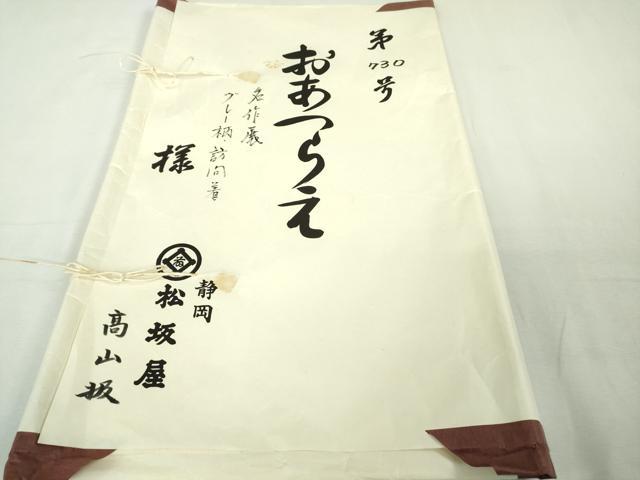 第
730
号
おあつらえ
名作展
グレー柄、訪問着
様
静岡
松坂屋
高山扱